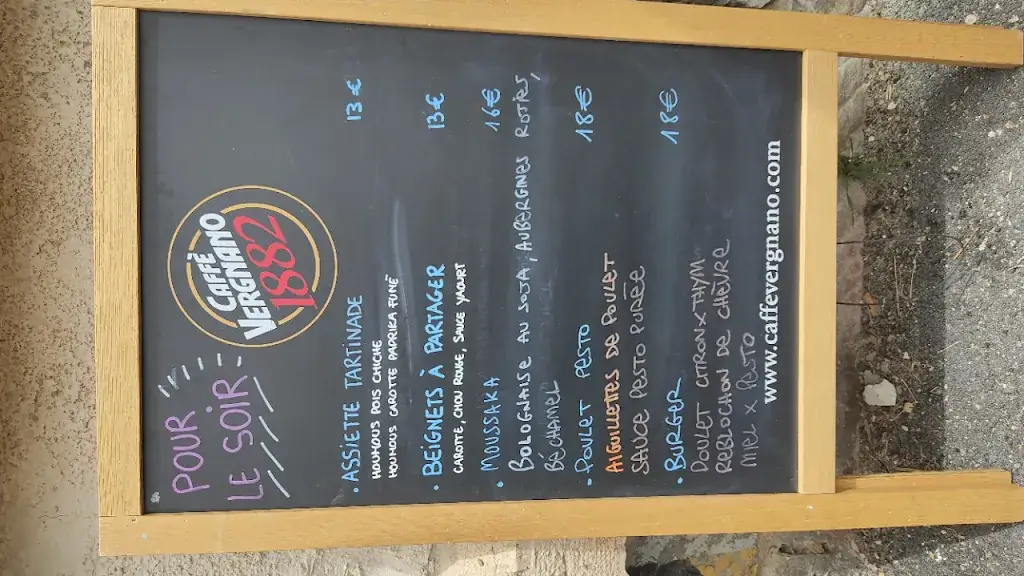 POUR
LE SOIR
CAFFÈ
VERGNANO
1882
• ASSIETTE TARTINADE 13€
HOUMOUS POIS CHICHE
HOUMOUS CAROTTE PAPRIKA FUMÉ
• BEIGNETS À PARTAGER 13€
CAROTTE, CHOU ROUGE, SAUCE YAOURT
• MOUSSAKA 16€
BOLOGNAISE AU SOJA, AUBERGINES ROTIES,
BÉCHAMEL
• POULET PESTO 18€
AIGUILLETTES DE POULET
SAUCE PESTO PURÉE
• BURGER 18€
POULET CITRON X THYM
REBLOCHON DE CHÈVRE
MIEL X PESTO
www.caffevergnano.com